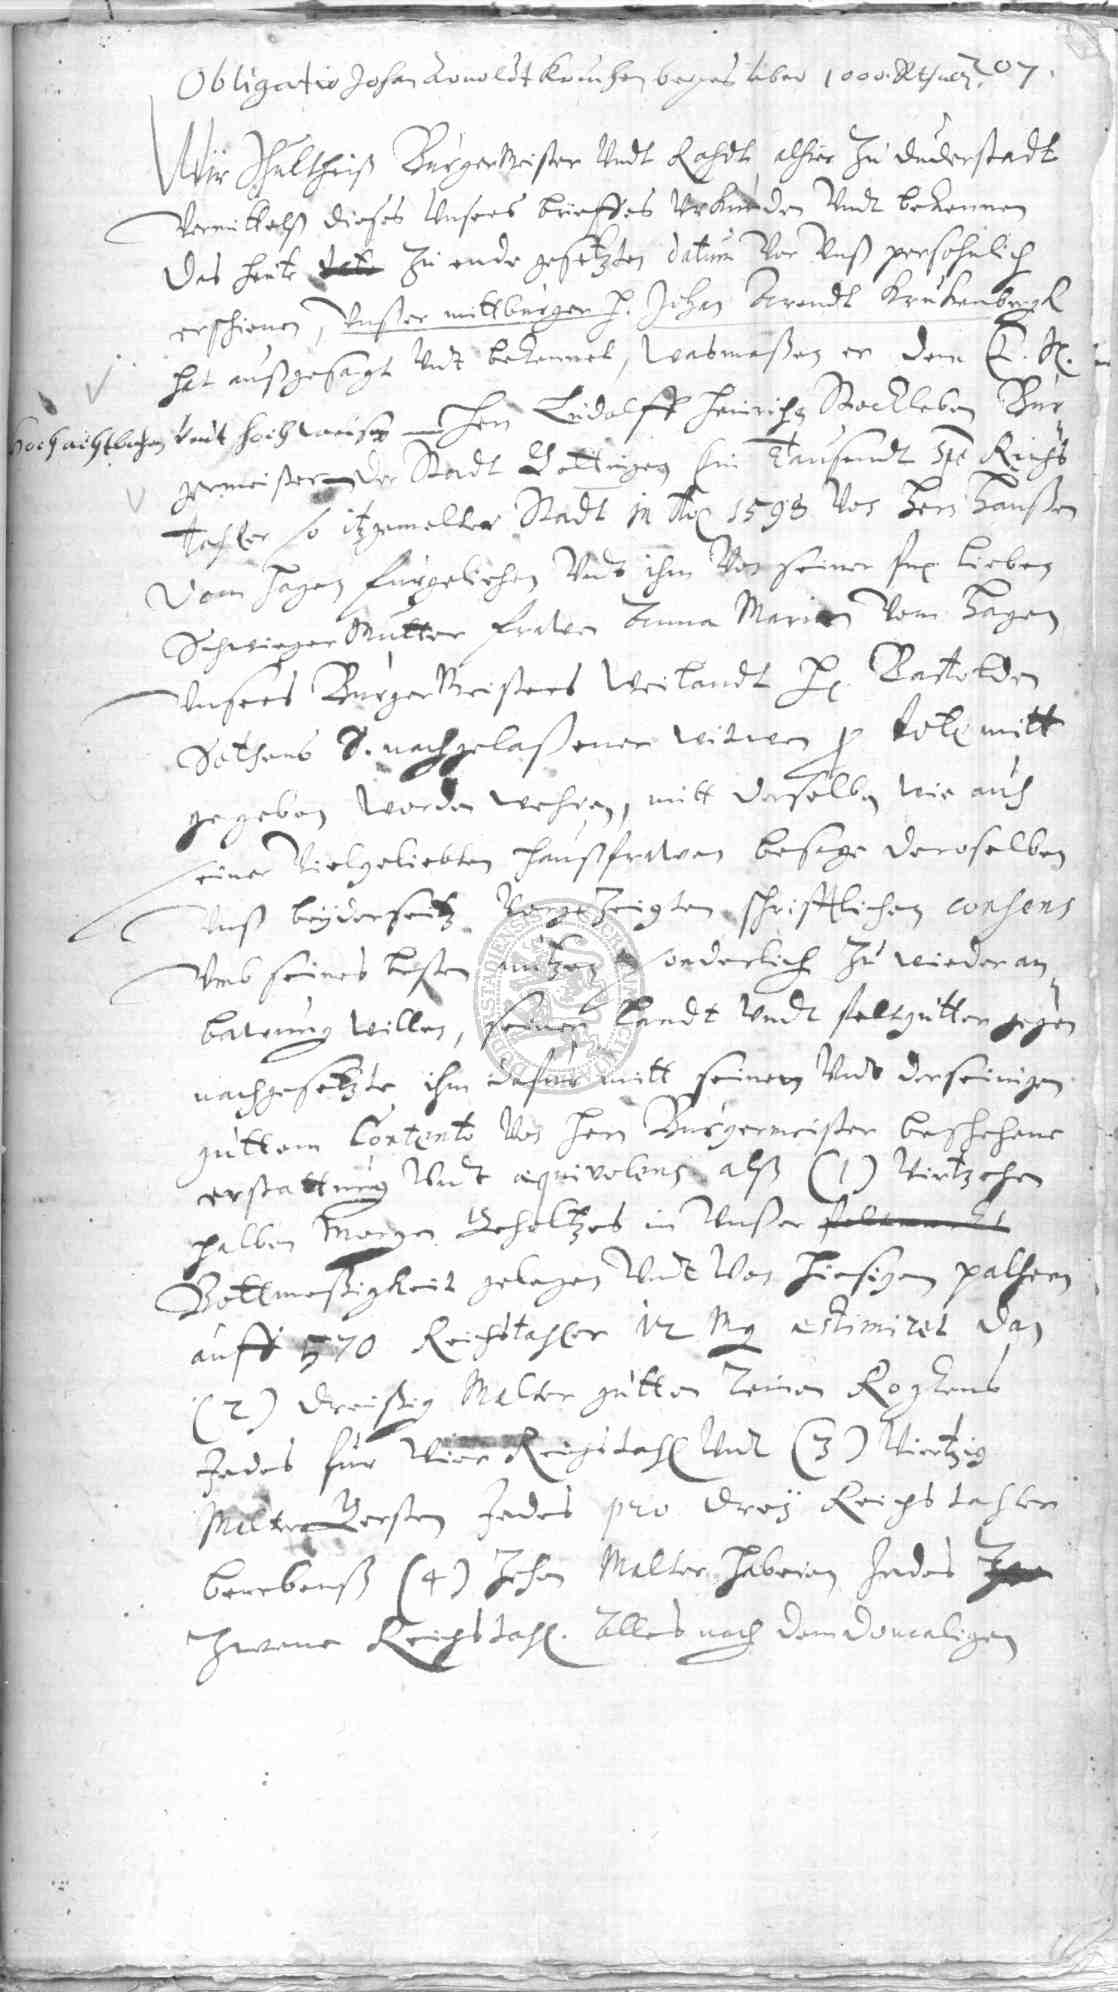 Obligatio Johan Arnoldt Kruckenberges über 1000 Rthaler
207.
Wir Schultheiß BürgerMeister Undt Rahdt alhier Zu Duderstadt
Vermittelß dieses Unsers brieffes Urkunden Undt bekennen
Das heute Zu ende gesetzten datum Vor Unß persohnlich
erschienen, Unßer mittburger H. Johan Arendt Kruckenbergk
hat außgesagt Undt bekennet, wasmaßen er dem E.
Hochachtbahren undt hochweisen Hern Ludolff Heinrichen Stockleben Bür
germeistern der Stadt Göttingen Ein Tausendt Spe Reichs
thaler so itzgemelter Stadt in Ao 1593 Von Hern Hanßen
Vom Hagen furgeliehen Undt ihm Von seiner lieben
SchwiegerMutter Frawen Anna Marien Vom Hagen
Unsers BürgerMeisters Weilandt H. Bartolden
Sothens S. nachgelaßener witwen p dote mitt
gegeben worden wehren, mitt derselben wie auch
seiner Vielgeliebten haußfrawen besage deroselben
Unß beyderseitz Vorgezeigten schrifftlichen consens
Umb seines besten nutzen sonderlich Zu wieder an
bawung willen, seiner Landt Undt feltgütter gegen
nachgesetzte ihm dafur mitt seinem Undt derseinigen
guttem Contento Von Hern Bürgermeister beschehene
erstattung Undt æquivalens alß (1) Viertzehen
halben Morgen Geholtzes in Unßer
Bottmeßigkeit gelegen Undt Von hiesigen
auff 570 Reichsthaler 12 Mg æstimiret dan
(2) Dreißig Malter gutten reinen Rogkens
Jedes für Vier Reichsthal Undt (3) Viertzig
Malter Gersten Jedes pro drey Reichsthaler
(4) Zehen Malter Habern Jedes
Zwene Reichsthal. Alles nach dem domaligen